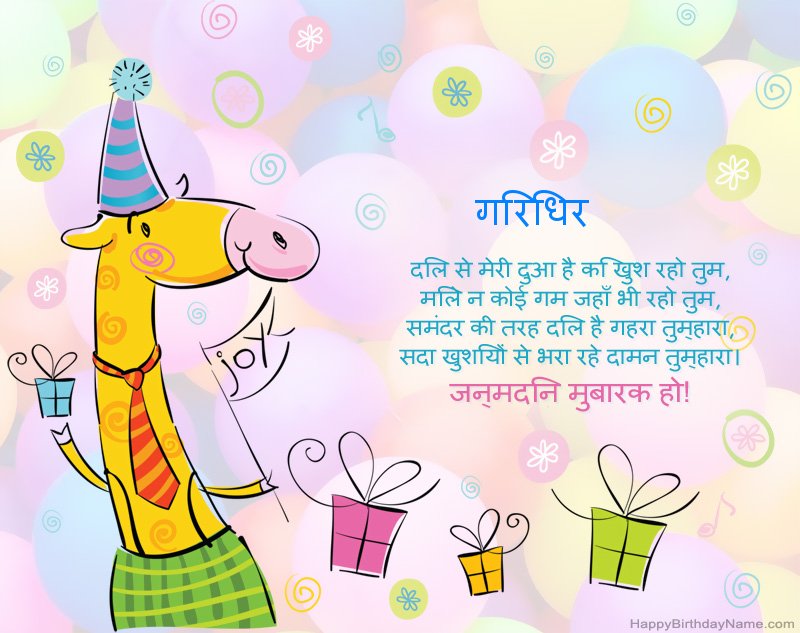 joy
गरिधिर
दलि से मेरी दुआ है कि खुश रहो तुम,
मलिे न कोई गम जहाँ भी रहो तुम,
समंदर की तरह दलि है गहरा तुम्हारा,
सदा खुशयिों से भरा रहे दामन तुम्हारा।
जन्मदनि मुबारक हो!
HappyBirthdayName.com